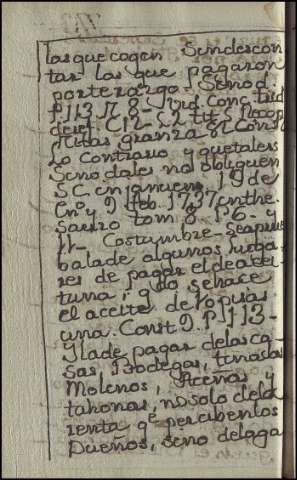 las que cogen Sin descon
tar las que pagaron
por terazgo. Sinod.
P. 113. N. 8.
Mitas granza &c Consta
lo contrario y que tales
Sinodales no obliguen
S. C. in januem. 19 de
En.º y 9 feb. 1737 in the
sauro tom 8. P. 6. y
11. Costumbre Se aprue
ba la de algunos luga
res de pagar el de acei
tuna, q.do se hace
el aceite de la pia
una. Const. 9. P. 113.
Y la de pagar de las ca
sas, Bodegas, tinadas
Molinos, Aceñas y
tahonas, no solo de la
renta q.e perciben los
Dueños, sino de la ga